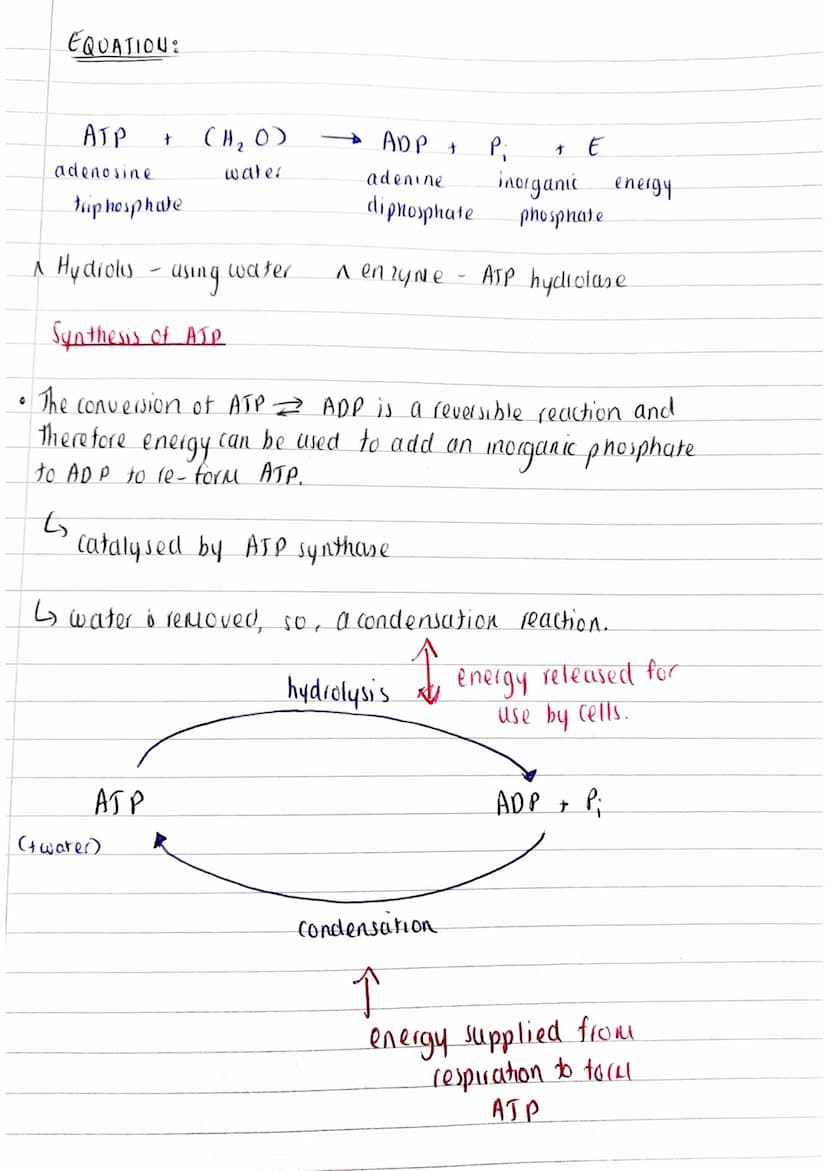 EQUATION:
ATP + (H₂O) → ADP + Pi + E
adenosine water adenine inorganic energy
triphosphate diphosphate phosphate
^ Hydrolis - using water ^ enzyme - ATP hydrolase
Synthesis of ATP
• The conversion of ATP ⇌ ADP is a reversible reaction and
therefore energy can be used to add an inorganic phosphate
to ADP to re-form ATP.
↳ catalysed by ATP synthase
↳ water is removed, so, a condensation reaction.
hydrolysis energy released for
use by cells.
ATP ADP + Pi
(+water)
condensation
energy supplied from
respiration to form
ATP